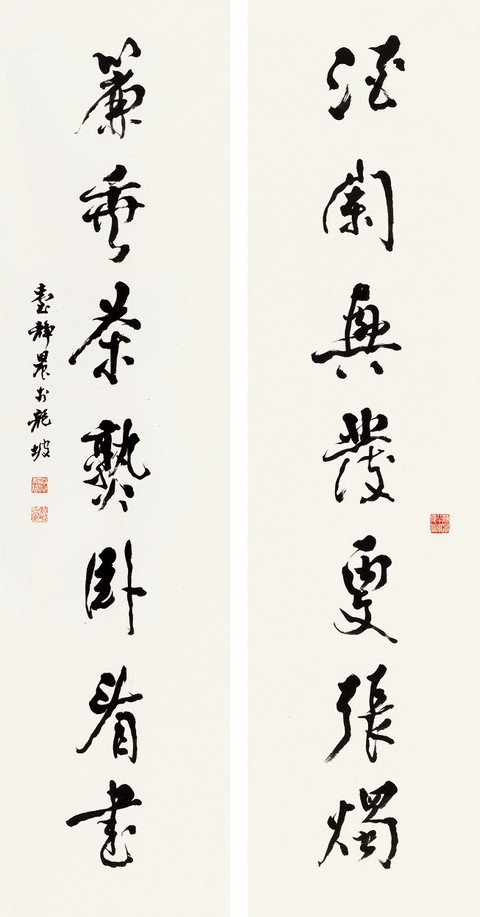 酒闌興發更張燭
簾垂茶熟臥看書
臺靜農於龍坡